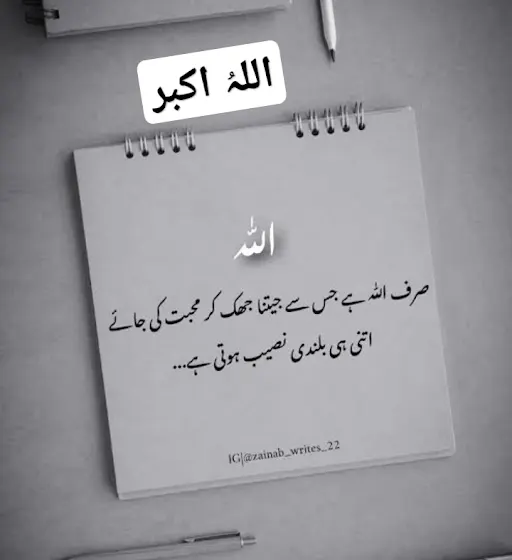 اللہُ اکبر
اللہ
صرف اللہ ہے جس سے جیتنا جھک کر محبت کی جائے
اتنی ہی بلندی نصیب ہوتی ہے...
IG|@zainab_writes_22